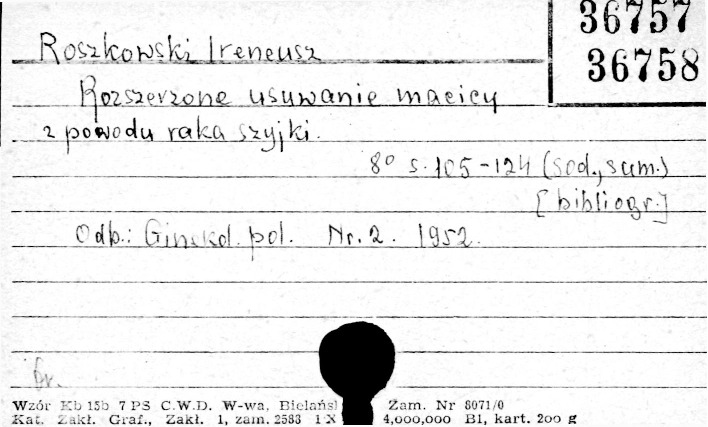 36757
36758
Roszkowski Ireneusz
Rozszerzone usuwanie macicy
z powodu raka szyjki.
8° s. 105-124 (sod., sum.)
[bibliogr.]
Odb.: Ginekol. pol. Nr. 2. 1952.
Br.
Wzór Kb 15b 7 PS C.W.D. W-wa, Bielańsk Zam. Nr 8071/0
Kat. Zakł. Graf., Zakł. 1, zam. 2583 IX 4,000,000 B1, kart. 200 g